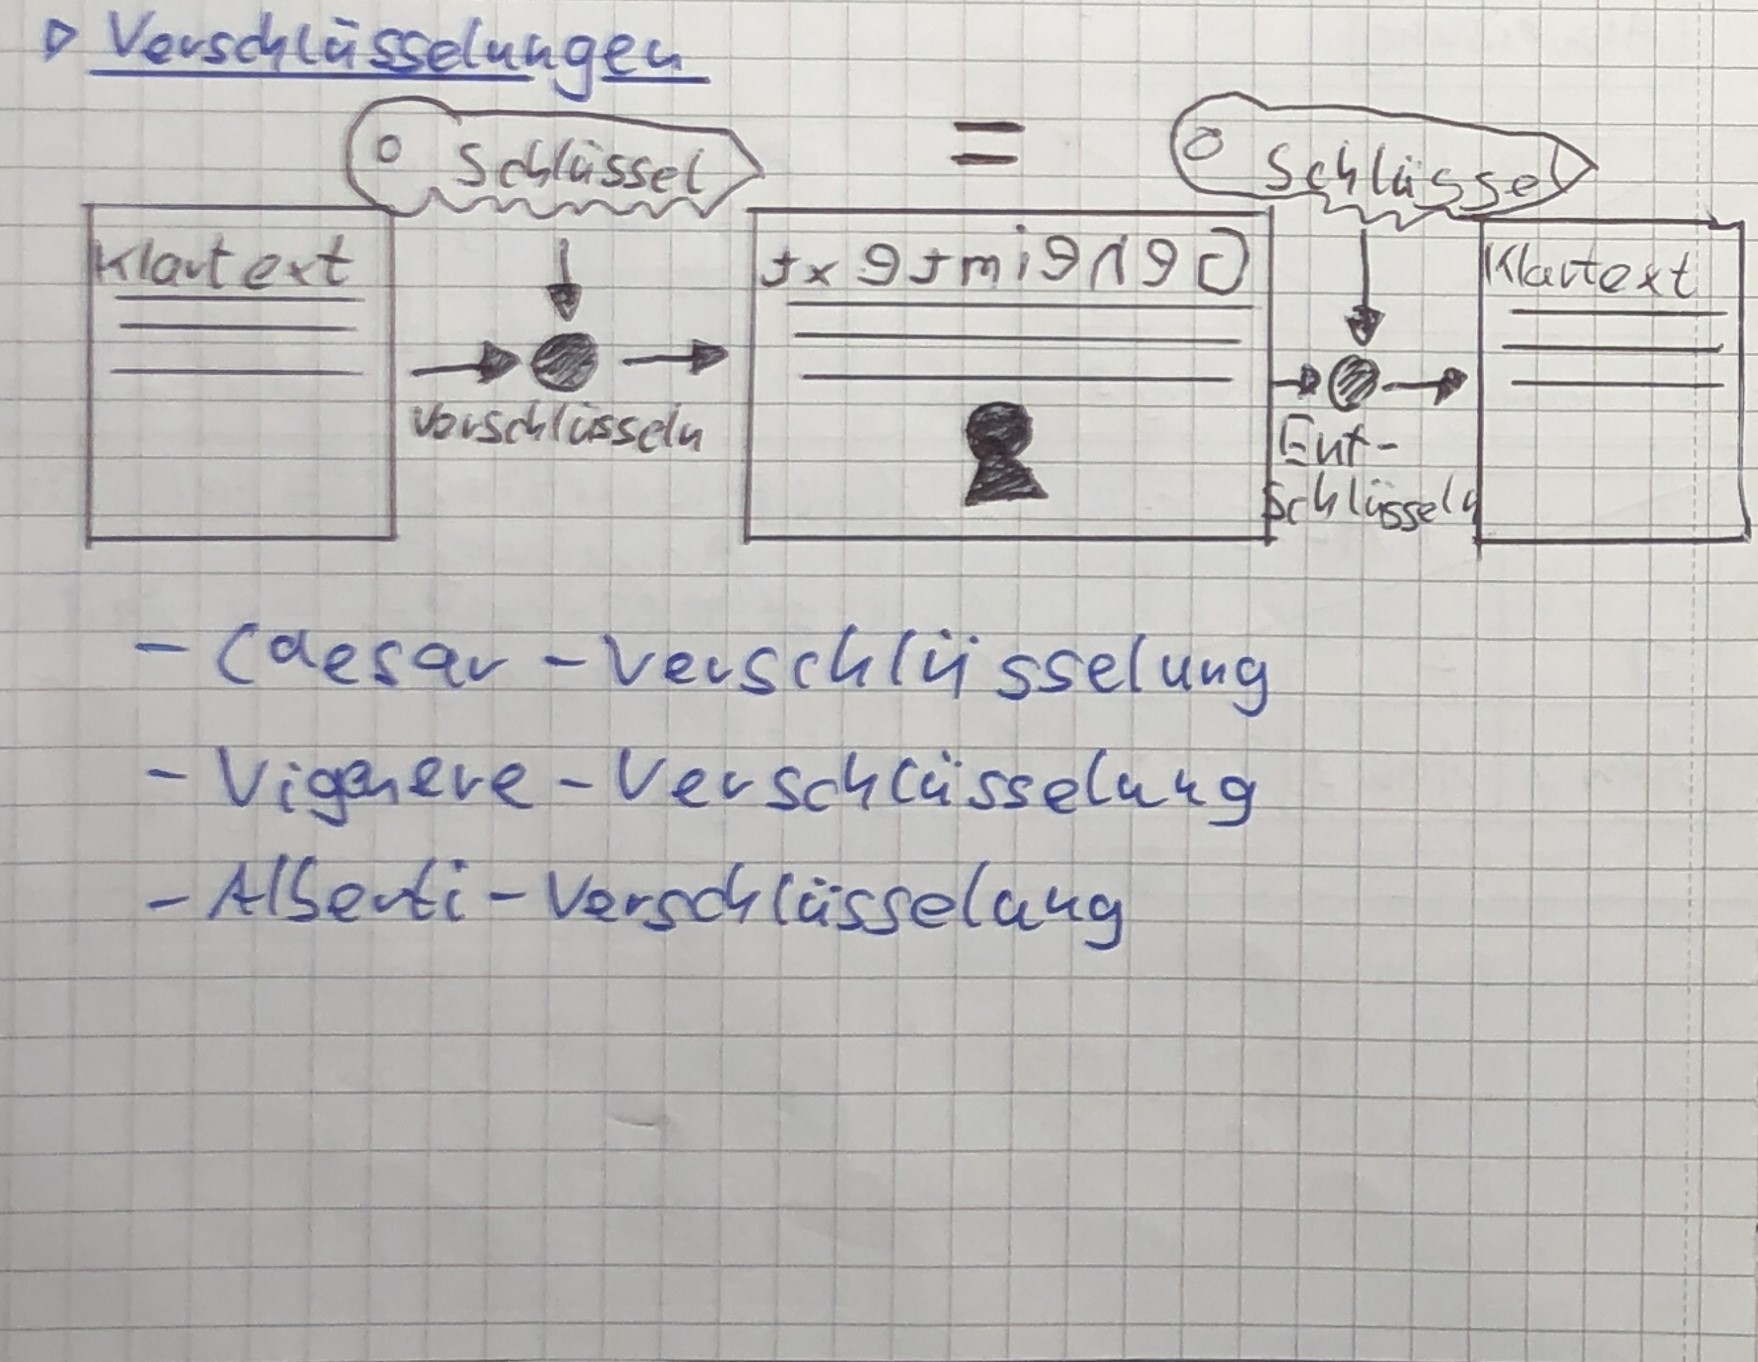 ▷ Verschlüsselungen
Schlüssel = Schlüssel
Klartext
Verschlüsseln
Geheimtext
Ent-
schlüsseln
Klartext
- Caesar-Verschlüsselung
- Vigenere-Verschlüsselung
- Alberti-Verschlüsselung